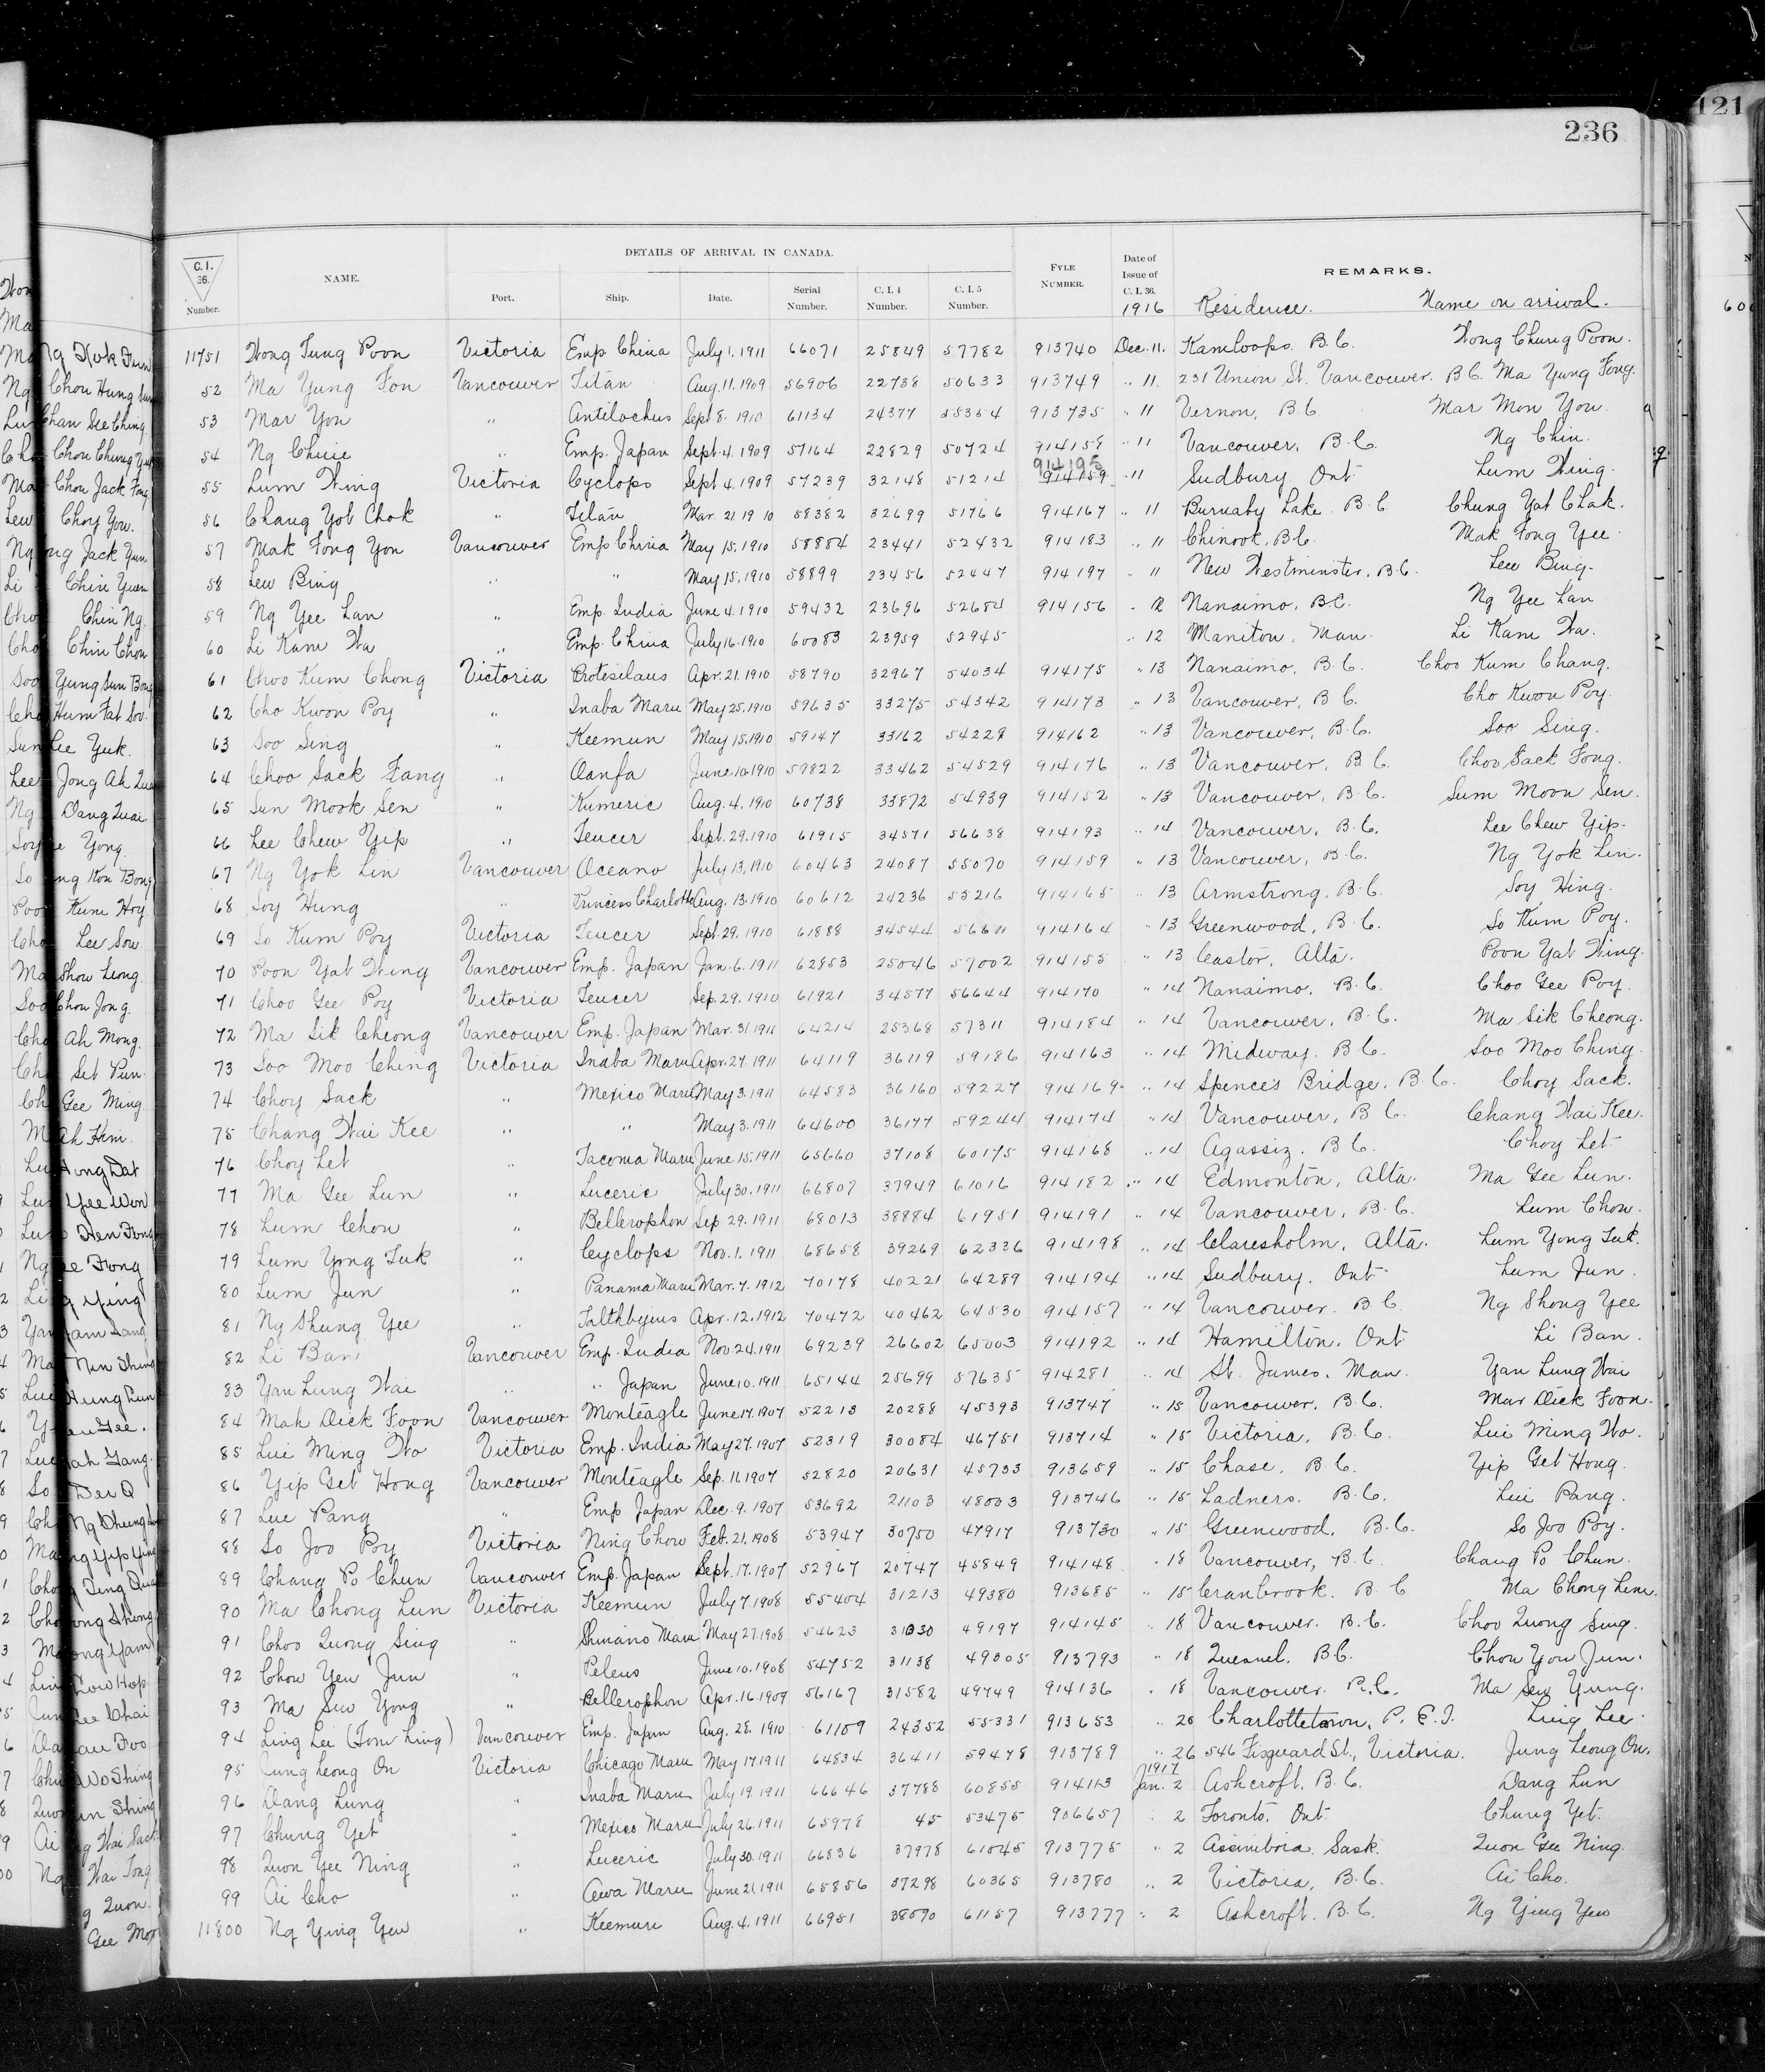 121
236
DETAILS OF ARRIVAL IN CANADA.
C. I. 36. Number. NAME. Port. Ship. Date. Serial Number. C. I. 4 Number. C. I. 5 Number. FYLE NUMBER. Date of Issue of C. I. 36. REMARKS.
1916 Residence. Name on arrival.
11751 Wong Tung Poon Victoria Emp China July 1. 1911 66071 25849 57782 913740 Dec. 11. Kamloops. B.C. Wong Chung Poon.
52 Ma Yung Fon Vancouver Titan Aug. 11. 1909 56906 22738 50633 913749 " 11. 231 Union St. Vancouver. B.C. Ma Yung Fong.
53 Mar Yon " Antilochus Sept 8. 1910 61134 24377 55354 913735 " 11 Vernon, B.C. Mar Mon You.
54 Ng Chuie " Emp. Japan Sept. 4. 1909 57164 22829 50724 914158 " 11 Vancouver, B.C. Ng Chin.
55 Lum Wing Victoria Cyclops Sept 4. 1909 57239 32148 51214 914195 914159 " 11 Sudbury. Ont. Lum Wing.
56 Chang Yot Chok " Titan Mar. 21. 1910 58382 32699 51766 914167 " 11 Burnaby Lake. B.C. Chung Yat Chak.
57 Mak Fong Yon Vancouver Emp China May 15. 1910 58884 23441 52432 914183 " 11 Chinook, B.C. Mak Fong Yee
58 Lew Bing " " May 15. 1910 58899 23456 52447 914197 " 11 New Westminster. B.C. Lew Bing.
59 Ng Yee Lan " Emp. India June 4. 1910 59432 23696 52684 914156 " 12 Nanaimo. B.C. Ng Yee Lan
60 Li Kam Wa " Emp. China July 16. 1910 60083 23959 52945 " 12 Maniton. Man. Li Kam Wa.
61 Choo Kum Chong Victoria Protesilaus Apr. 21. 1910 58790 32967 54034 914175 " 13 Nanaimo. B.C. Choo Kum Chang.
62 Cho Kwon Poy " Inaba Maru May 25. 1910 59635 33275 54342 914173 " 13 Vancouver, B.C. Cho Kwon Poy.
63 Soo Sing " Keemun May 15. 1910 59147 33162 54229 914162 " 13 Vancouver, B.C. Soo Sing.
64 Choo Sack Fang " Oanfa June 10. 1910 59822 33462 54529 914176 " 13 Vancouver, B.C. Choo Sack Fong.
65 Sun Mook Sen " Kumeric Aug. 4. 1910 60738 33872 54939 914152 " 13 Vancouver, B.C. Sum Moon Sen.
66 Lee Chew Yip " Teucer Sept. 29. 1910 61915 34571 56638 914193 " 14 Vancouver. B.C. Lee Chew Yip.
67 Ng Yok Lin Vancouver Oceano July 13, 1910 60463 24087 55070 914159 " 13 Vancouver, B.C. Ng Yok Lin.
68 Soy Hung " Princess Charlotte Aug. 13. 1910 60612 24236 55216 914165 " 13 Armstrong, B.C. Soy Hing.
69 So Kum Poy Victoria Teucer Sept. 29. 1910 61888 34544 56611 914164 " 13 Greenwood, B.C. So Kum Poy.
70 Poon Yat Wing Vancouver Emp. Japan Jan. 6. 1911 62853 25046 57002 914155 " 13 Castor, Alta. Poon Yat Wing.
71 Choo Gee Poy Victoria Teucer Sep. 29. 1910 61921 34577 56644 914170 " 14 Nanaimo. B.C. Choo Gee Poy.
72 Ma Sik Cheong Vancouver Emp. Japan Mar. 31 1911 64214 25368 57311 914184 " 14 Vancouver. B.C. Ma Sik Cheong.
73 Soo Moo Ching Victoria Inaba Maru Apr. 27. 1911 64119 36119 59186 914163 " 14 Midway. B.C. Soo Moo Ching.
74 Choy Sack " Mexico Maru May 3. 1911 64583 36160 59227 914169 " 14 Spences Bridge. B.C. Choy Sack.
75 Chang Wai Kee " " May 3. 1911 64600 36177 59244 914174 " 14 Vancouver, B.C. Chang Wai Kee.
76 Choy Let " Tacoma Maru June 15. 1911 65660 37108 60175 914168 " 14 Agassiz. B.C. Choy Let
77 Ma Gee Lun " Luceric July 30. 1911 66807 37949 61016 914182 " 14 Edmonton, Alta. Ma Gee Lun.
78 Lum Chon " Bellerophon Sep 29. 1911 68013 38884 61951 914191 " 14 Vancouver, B.C. Lum Chow.
79 Lum Yong Tuk " Cyclops Nov. 1. 1911 68658 39269 62336 914198 " 14 Claresholm, Alta. Lum Yong Tuk.
80 Lum Jun " Panama Maru Mar. 7. 1912 70178 40221 64289 914194 " 14 Sudbury. Ont. Lum Jun.
81 Ng Shung Yee " Talthbyius Apr. 12. 1912 70472 40462 64530 914157 " 14 Vancouver. B.C. Ng Shong Yee
82 Li Ban Vancouver Emp. India Nov 24. 1911 69239 26602 65003 914192 " 14 Hamilton. Ont. Li Ban.
83 Yan Lung Wai " " Japan June 10. 1911 65144 25699 57635 914281 " 14 St. James. Man. Yan Lung Wai
84 Mah Dick Foon Vancouver Monteagle June 17. 1907 52213 20288 45393 913747 " 15 Vancouver. B.C. Mar Dick Foon.
85 Lui Ming Wo Victoria Emp. India May 27. 1907 52319 30084 46751 913714 " 15 Victoria, B.C. Lui Ming Wo.
86 Yip Get Hong Vancouver Monteagle Sep. 11. 1907 52820 20631 45733 913659 " 15 Chase. B.C. Yip Get Hong.
87 Lue Pang " Emp Japan Dec. 9. 1907 53692 21103 48003 913746 " 15 Ladners. B.C. Lui Pang.
88 So Joo Poy Victoria Ning Chow Feb. 21. 1908 53947 30750 47917 913730 " 15 Greenwood. B.C. So Joo Poy.
89 Chang Po Chun Vancouver Emp. Japan Sept. 17. 1907 52967 20747 45849 914148 " 18 Vancouver, B.C. Chang Po Chun.
90 Ma Chong Lun Victoria Keemun July 7. 1908 55404 31213 49380 913685 " 15 Cranbrook. B.C. Ma Chong Lem.
91 Choo Quong Sing " Shinano Maru May 27. 1908 54623 31030 49197 914145 " 18 Vancouver. B.C. Choo Quong Sing.
92 Chow Yew Jun " Peleus June 10. 1908 54752 31138 49305 913793 " 18 Quesnel. B.C. Chow You Jun.
93 Ma Sew Yong " Bellerophon Apr. 16. 1909 56167 31582 49749 914136 " 18 Vancouver. B.C. Ma Sew Yung.
94 Ling Lei (Tom Ling) Vancouver Emp. Japan Aug. 28. 1910 61109 24352 55331 913653 " 20 Charlottetown, P.E.I. Ling Lee.
95 Jung Leong On Victoria Chicago Maru May 17. 1911 64834 36411 59478 913789 " 26 546 Fisguard St., Victoria. Jung Leong On.
1917
96 Dang Lung " Inaba Maru July 19. 1911 66646 37788 60855 914113 Jan. 2 Ashcroft. B.C. Dang Lun
97 Chung Yet " Mexico Maru July 26. 1911 65978 45 53475 906657 " 2 Toronto. Ont. Chung Yet.
98 Quon Yee Ning " Luceric July 30. 1911 66836 37978 61045 913775 " 2 Assiniboia. Sask. Quon Gee Ning.
99 Ai Cho " Awa Maru June 21. 1911 65856 37298 60365 913780 " 2 Victoria, B.C. Ai Cho.
11800 Ng Ying Yew " Keemun Aug. 4. 1911 66951 38090 61157 913777 " 2 Ashcroft. B.C. Ng Ying Yew